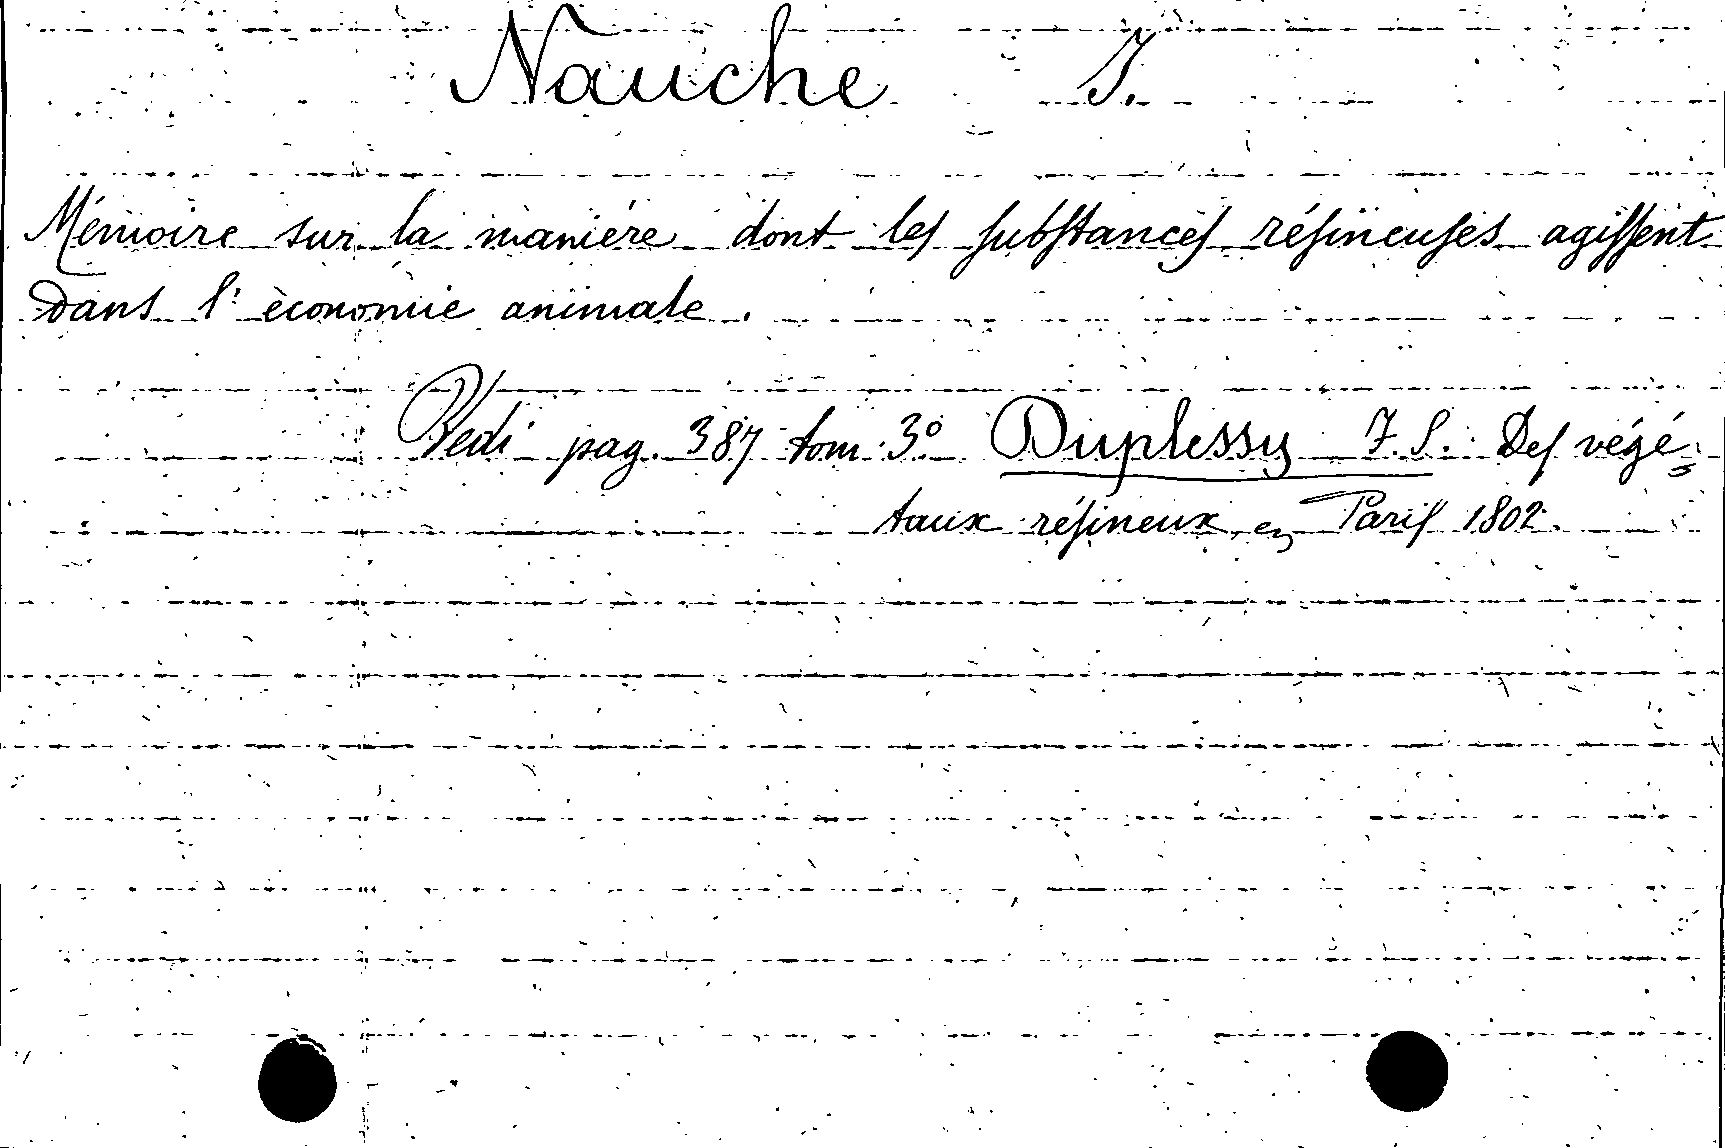 Nauche J.
Mémoire sur la maniére dont les substances résineuses agissent
dans l'économie animale.
Vedi pag. 387 tom. 3º Duplessy F. S. Des végé=
taux résineux, en Paris 1802.